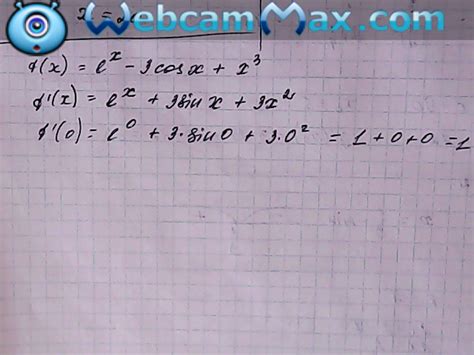 WebcamMax.com
f(x) = e^x - 3cosx + x^3
f'(x) = e^x + 3sinx + 3x^2
f'(0) = e^0 + 3·sin0 + 3·0^2 = 1+0+0=1